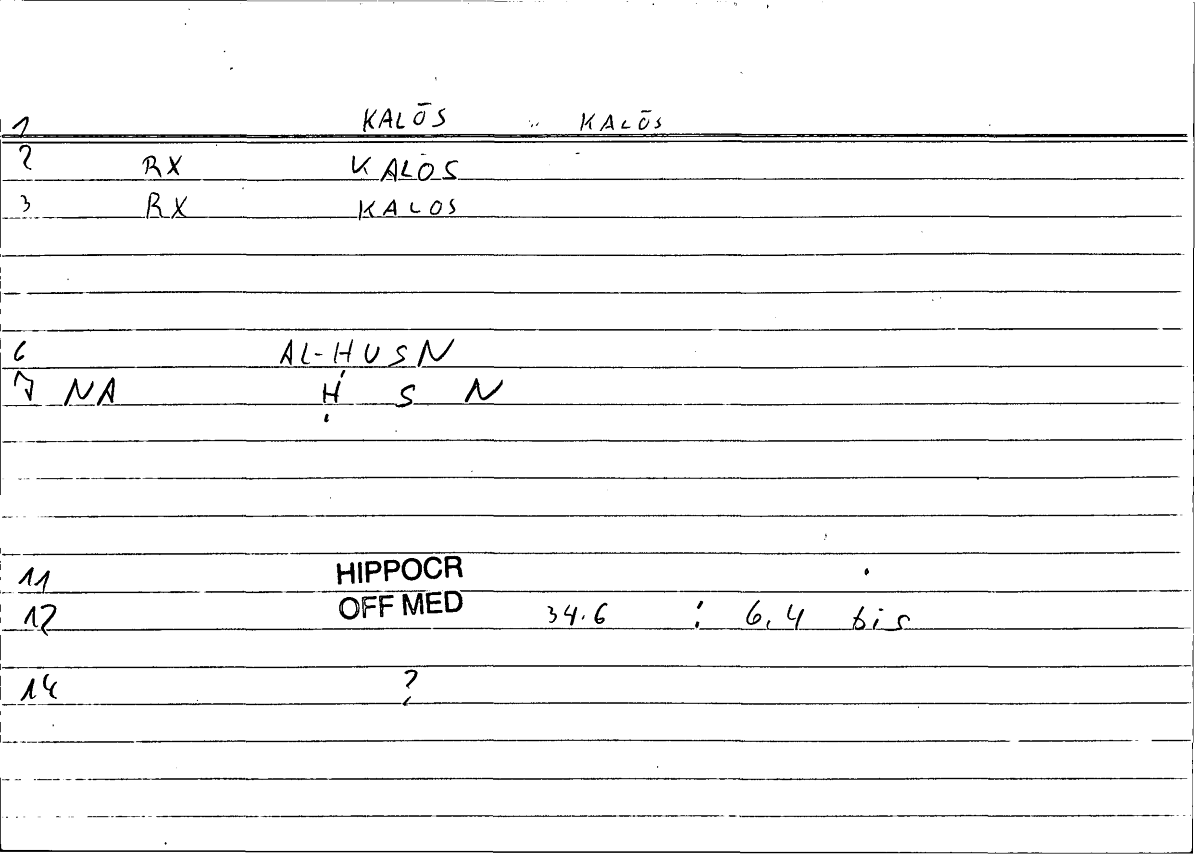 1 KALŌS " KALŌS
2 RX KALŌS
3 RX KALOS
6 AL-ḤUSN
7 NA Ḥ S N
11 HIPPOCR
12 OFF MED 34.6 : 6,4 bis
14 ?